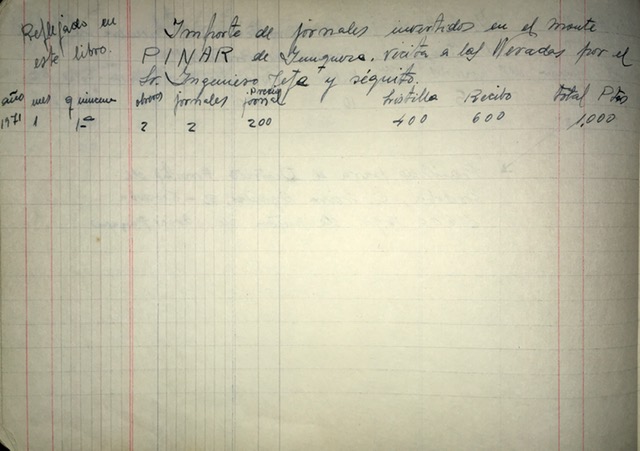 Reflejado en
este libro.
Importe de jornales invertidos en el monte
PINAR de Yunquera, vicita a las Nevadas por el
Sr. Ingeniero Jefe y séquito.
año mes quincena obreros jornales Precio jornal Listilla Recibo total Ptas
1971 1 1ª 2 2 200 400 600 1,000